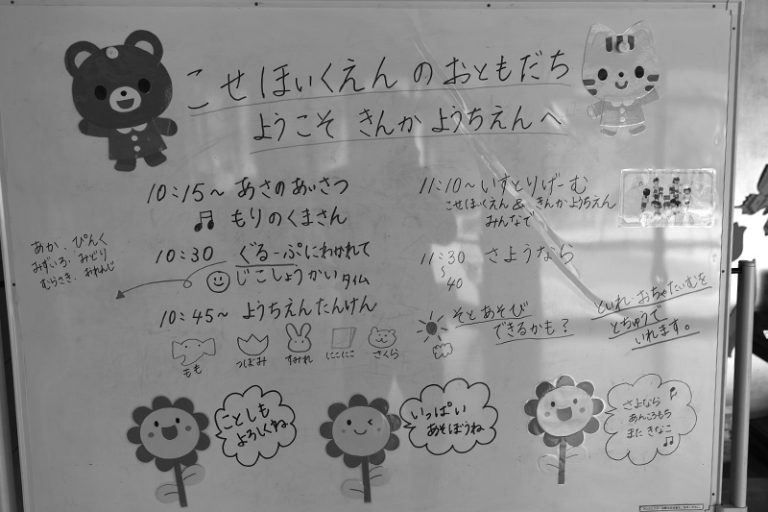 こせほいくえん の おともだち
ようこそ きんか ようちえん へ
10:15～ あさの あいさつ
♫ もりの くまさん
10:30 ぐるーぷに わかれて
じこしょうかい タイム
あか、ぴんく
みずいろ、みどり
むらさき、おれんじ
10:45～ ようちえん たんけん
もも つぼみ すみれ にこにこ さくら
11:10～ いすとりげーむ
こせほいくえん & きんか ようちえん
みんなで
11:30 さようなら
40
そとあそび
できるかも?
といれ・おちゃたいむを
とちゅうで
いれます。
ことしも
よろしくね
いっぱい
あそぼうね
さよなら
あんころもち
また きなこ